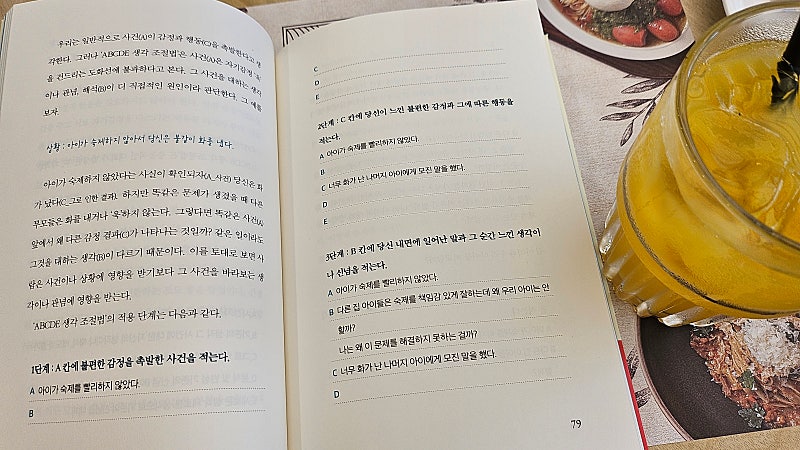 우리는 일반적으로 사건(A)이 감정과 행동(C)을 촉발한다고 생
각한다. 그러나 'ABCDE 생각 조절법'은 사건(A)은 자기감정 '욱'
을 건드리는 도화선에 불과하다고 본다. 그 사건을 대하는 생각
이나 관념, 해석(B)이 더 직접적인 원인이라 판단한다. 그 예를
보자.
상황 : 아이가 숙제하지 않아서 당신은 불같이 화를 낸다.
아이가 숙제하지 않았다는 사실이 확인되자(A_사건) 당신은 화
가 났다(C_그로 인한 결과). 하지만 똑같은 문제가 생겼을 때 다른
부모들은 화를 내거나 '욱'하지 않는다. 그렇다면 똑같은 사건(A)
앞에서 왜 다른 감정 결과(C)가 나타나는 것일까? 같은 일이라도
그것을 대하는 생각(B)이 다르기 때문이다. 이를 토대로 보면 사
람은 사건이나 상황에 영향을 받기보다 그 사건을 바라보는 생
각이나 관념에 영향을 받는다.
'ABCDE 생각 조절법'의 적용 단계는 다음과 같다.
1단계 : A 칸에 불편한 감정을 촉발한 사건을 적는다.
A 아이가 숙제를 빨리하지 않았다.
B
C
D
E
2단계 : C 칸에 당신이 느낀 불편한 감정과 그에 따른 행동을
적는다.
A 아이가 숙제를 빨리하지 않았다.
B
C 너무 화가 난 나머지 아이에게 모진 말을 했다.
D
E
3단계 : B 칸에 당신 내면에 일어난 말과 그 순간 느낀 생각이
나 신념을 적는다.
A 아이가 숙제를 빨리하지 않았다.
B 다른 집 아이들은 숙제를 책임감 있게 잘하는데 왜 우리 아이는 안
할까?
나는 왜 이 문제를 해결하지 못하는 걸까?
C 너무 화가 난 나머지 아이에게 모진 말을 했다.
D
79